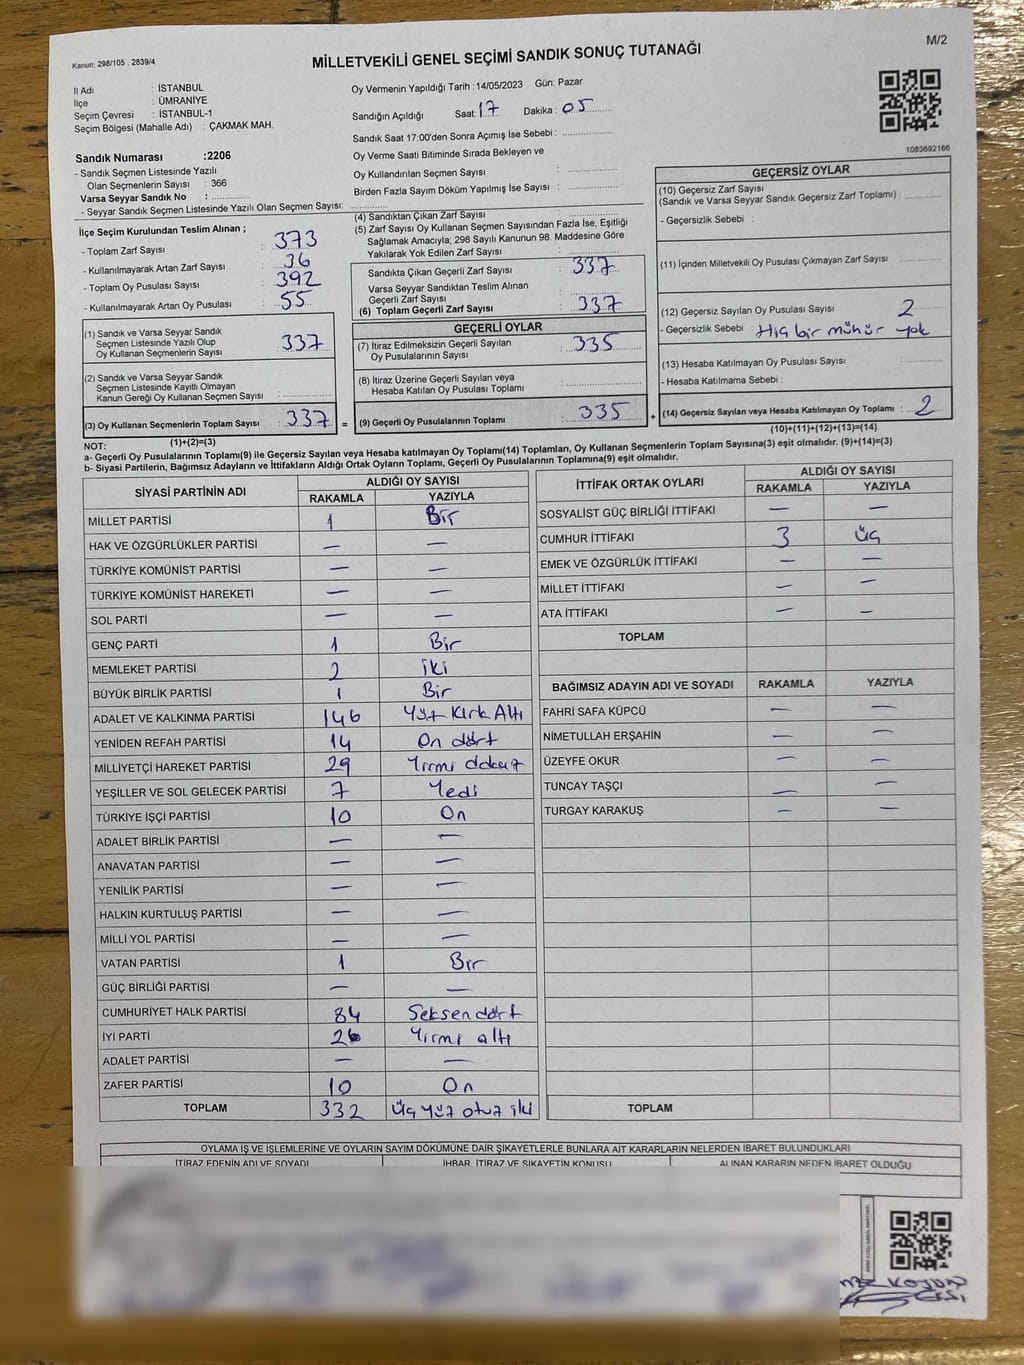 Kanun: 298/105 , 2839/4
MİLLETVEKİLİ GENEL SEÇİMİ SANDIK SONUÇ TUTANAĞI
M/2
İl Adı : İSTANBUL
İlçe : ÜMRANİYE
Seçim Çevresi : İSTANBUL-1
Seçim Bölgesi (Mahalle Adı) : ÇAKMAK MAH.
Sandık Numarası :2206
- Sandık Seçmen Listesinde Yazılı
Olan Seçmenlerin Sayısı : 366
Varsa Seyyar Sandık No :
- Seyyar Sandık Seçmen Listesinde Yazılı Olan Seçmen Sayısı:
Oy Vermenin Yapıldığı Tarih :14/05/2023 Gün: Pazar
Sandığın Açıldığı Saat: 17 Dakika : 05
Sandık Saat 17:00'den Sonra Açımış İse Sebebi :
Oy Verme Saati Bitiminde Sırada Bekleyen ve
Oy Kullandırılan Seçmen Sayısı :
Birden Fazla Sayım Döküm Yapılmış İse Sayısı :
1083692166
İlçe Seçim Kurulundan Teslim Alınan ;
- Toplam Zarf Sayısı : 373
- Kullanılmayarak Artan Zarf Sayısı : 36
- Toplam Oy Pusulası Sayısı : 392
- Kullanılmayarak Artan Oy Pusulası : 55
(1) Sandık ve Varsa Seyyar Sandık
Seçmen Listesinde Yazılı Olup
Oy Kullanan Seçmenlerin Sayısı : 337
(2) Sandık ve Varsa Seyyar Sandık
Seçmen Listesinde Kayıtlı Olmayan
Kanun Gereği Oy Kullanan Seçmen Sayısı :
(3) Oy Kullanan Seçmenlerin Toplam Sayısı : 337 =
(1)+(2)=(3)
(4) Sandıktan Çıkan Zarf Sayısı :
(5) Zarf Sayısı Oy Kullanan Seçmen Sayısından Fazla İse, Eşitliği
Sağlamak Amacıyla; 298 Sayılı Kanunun 98. Maddesine Göre
Yakılarak Yok Edilen Zarf Sayısı :
Sandıkta Çıkan Geçerli Zarf Sayısı : 337
Varsa Seyyar Sandıktan Teslim Alınan
Geçerli Zarf Sayısı :
(6) Toplam Geçerli Zarf Sayısı : 337
GEÇERLİ OYLAR
(7) İtiraz Edilmeksizin Geçerli Sayılan
Oy Pusulalarının Sayısı : 335
(8) İtiraz Üzerine Geçerli Sayılan veya
Hesaba Katılan Oy Pusulası Toplamı :
(9) Geçerli Oy Pusulalarının Toplamı : 335 +
GEÇERSİZ OYLAR
(10) Geçersiz Zarf Sayısı
(Sandık ve Varsa Seyyar Sandık Geçersiz Zarf Toplamı) :
- Geçersizlik Sebebi :
(11) İçinden Milletvekili Oy Pusulası Çıkmayan Zarf Sayısı :
(12) Geçersiz Sayılan Oy Pusulası Sayısı : 2
- Geçersizlik Sebebi : Hiç bir mühür yok
(13) Hesaba Katılmayan Oy Pusulası Sayısı :
- Hesaba Katılmama Sebebi :
(14) Geçersiz Sayılan veya Hesaba Katılmayan Oy Toplamı : 2
(10)+(11)+(12)+(13)=(14)
NOT:
a- Geçerli Oy Pusulalarının Toplamı(9) ile Geçersiz Sayılan veya Hesaba katılmayan Oy Toplamı(14) Toplamları, Oy Kullanan Seçmenlerin Toplam Sayısına(3) eşit olmalıdır. (9)+(14)=(3)
b- Siyasi Partilerin, Bağımsız Adayların ve İttifakların Aldığı Ortak Oyların Toplamı, Geçerli Oy Pusulalarının Toplamına(9) eşit olmalıdır.
SİYASİ PARTİNİN ADI ALDIĞI OY SAYISI
RAKAMLA YAZIYLA
MİLLET PARTİSİ 1 Bir
HAK VE ÖZGÜRLÜKLER PARTİSİ — —
TÜRKİYE KOMÜNİST PARTİSİ — —
TÜRKİYE KOMÜNİST HAREKETİ — —
SOL PARTİ — —
GENÇ PARTİ 1 Bir
MEMLEKET PARTİSİ 2 iki
BÜYÜK BİRLİK PARTİSİ 1 Bir
ADALET VE KALKINMA PARTİSİ 146 Yüz Kırk Altı
YENİDEN REFAH PARTİSİ 14 On dört
MİLLİYETÇİ HAREKET PARTİSİ 29 Yirmi dokuz
YEŞİLLER VE SOL GELECEK PARTİSİ 7 Yedi
TÜRKİYE İŞÇİ PARTİSİ 10 On
ADALET BİRLİK PARTİSİ — —
ANAVATAN PARTİSİ — —
YENİLİK PARTİSİ — —
HALKIN KURTULUŞ PARTİSİ — —
MİLLİ YOL PARTİSİ — —
VATAN PARTİSİ 1 Bir
GÜÇ BİRLİĞİ PARTİSİ — —
CUMHURİYET HALK PARTİSİ 84 Seksen dört
İYİ PARTİ 26 Yirmi altı
ADALET PARTİSİ — —
ZAFER PARTİSİ 10 On
TOPLAM 332 Üç yüz otuz iki
İTTİFAK ORTAK OYLARI ALDIĞI OY SAYISI
RAKAMLA YAZIYLA
SOSYALİST GÜÇ BİRLİĞİ İTTİFAKI — —
CUMHUR İTTİFAKI 3 üç
EMEK VE ÖZGÜRLÜK İTTİFAKI — —
MİLLET İTTİFAKI — —
ATA İTTİFAKI — —
TOPLAM
BAĞIMSIZ ADAYIN ADI VE SOYADI RAKAMLA YAZIYLA
FAHRİ SAFA KÜPCÜ — —
NİMETULLAH ERŞAHİN — —
ÜZEYFE OKUR — —
TUNCAY TAŞÇI — —
TURGAY KARAKUŞ — —
TOPLAM
OYLAMA İŞ VE İŞLEMLERİNE VE OYLARIN SAYIM DÖKÜMÜNE DAİR ŞİKAYETLERLE BUNLARA AİT KARARLARIN NELERDEN İBARET BULUNDUKLARI
İTİRAZ EDENİN ADI VE SOYADI İHBAR, İTİRAZ VE ŞİKAYETİN KONUSU ALINAN KARARIN NEDEN İBARET OLDUĞU